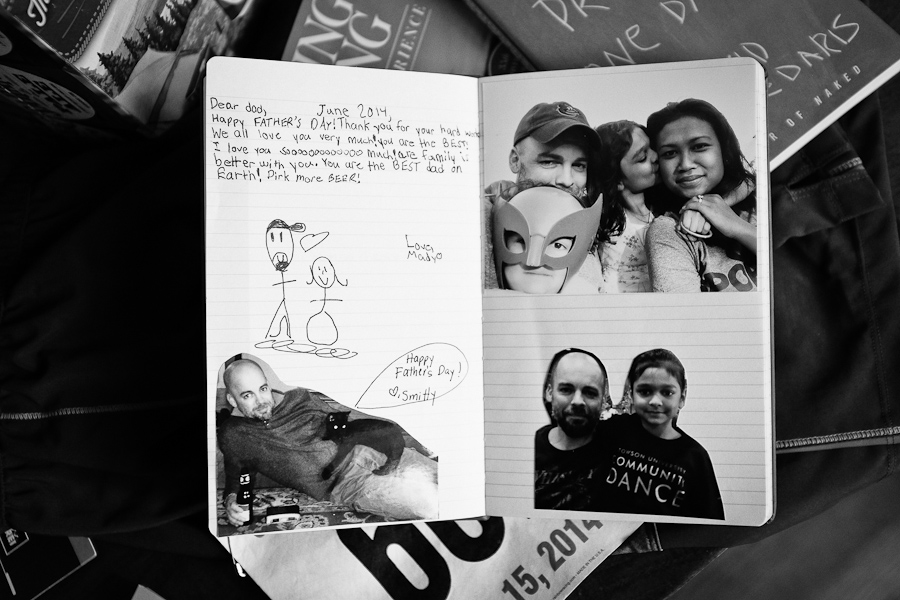 June 2014,
Dear dad,
Happy FATHER'S DAY! Thank you for your hard work
We all love you very much! you are the BEST!
I love you soooooooooooo much! are Family is
better with you. You are the BEST dad on
Earth! Dirk more BEER!
Love,
Mady
Happy
Father's Day!
Smitty
COMMUNITY
DANCE
EDARIS
R OF NAKED
15, 2014